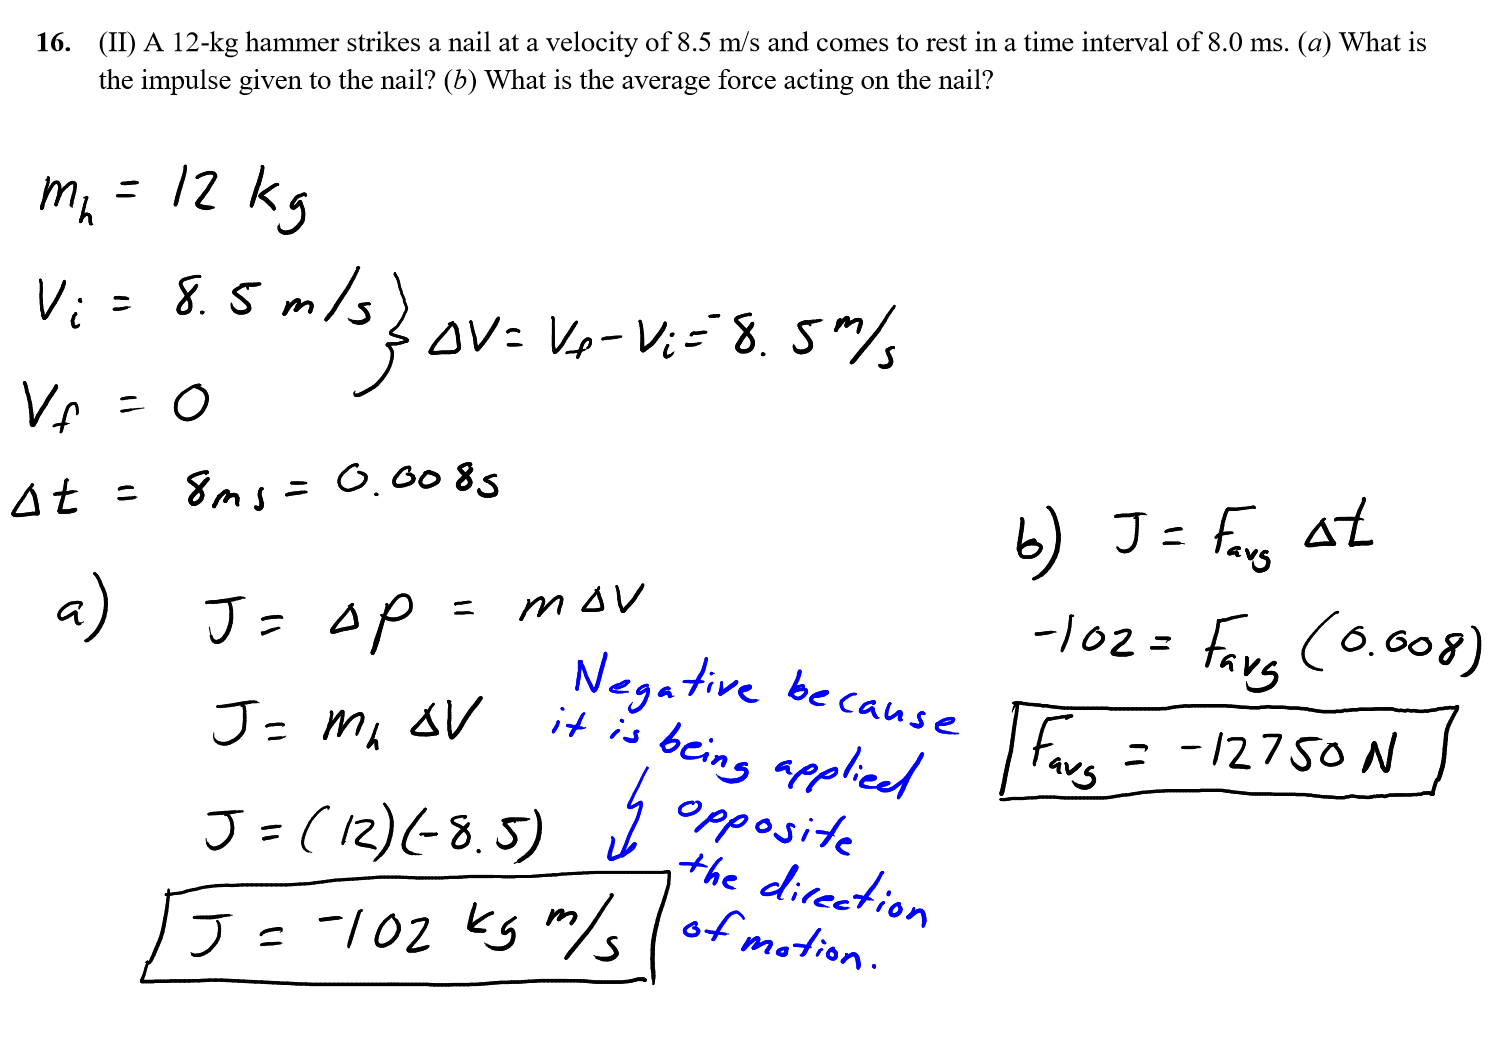 16. (II) A 12-kg hammer strikes a nail at a velocity of 8.5 m/s and comes to rest in a time interval of 8.0 ms. (a) What is
the impulse given to the nail? (b) What is the average force acting on the nail?
m_h = 12 kg
V_i = 8.5 m/s } ΔV = V_f - V_i = -8.5 m/s
V_f = 0
Δt = 8ms = 0.008s
a) J = Δp = mΔV
J = m_h ΔV
J = (12)(-8.5)
J = -102 kg m/s
Negative because
it is being applied
opposite
the direction
of motion.
b) J = F_avg Δt
-102 = F_avg (0.008)
F_avg = -12750 N